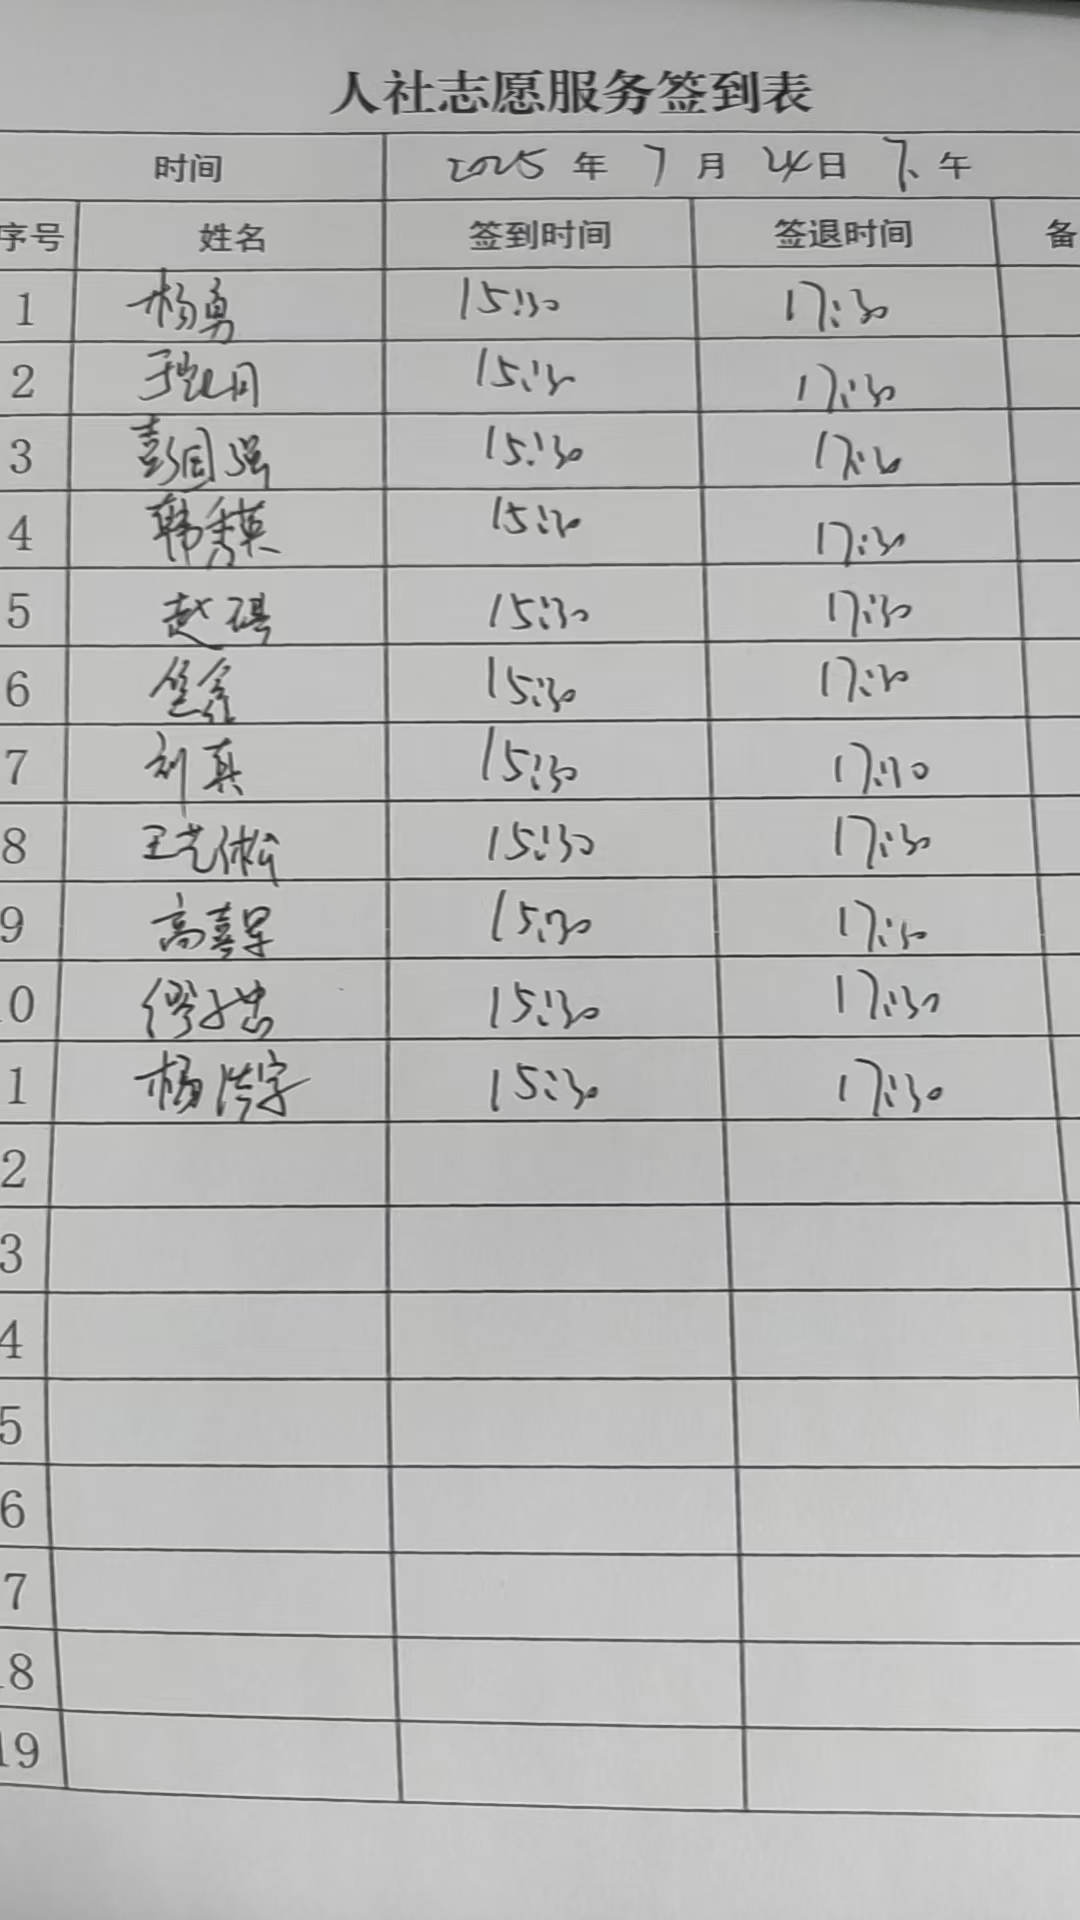 人社志愿服务签到表
时间 2025 年 7 月 24 日 下 午
序号 姓名 签到时间 签退时间 备
1 杨勇 15:30 17:30
2 15:30 17:30
3 彭国强 15:30 17:30
4 韩秀英 15:30 17:30
5 赵琪 15:30 17:30
6 15:30 17:30
7 刘真 15:30 17:30
8 王艺淞 15:30 17:30
9 高喜军 15:30 17:30
0 15:30 17:30
1 杨洪宇 15:30 17:30
2
3
4
5
6
7
18
19